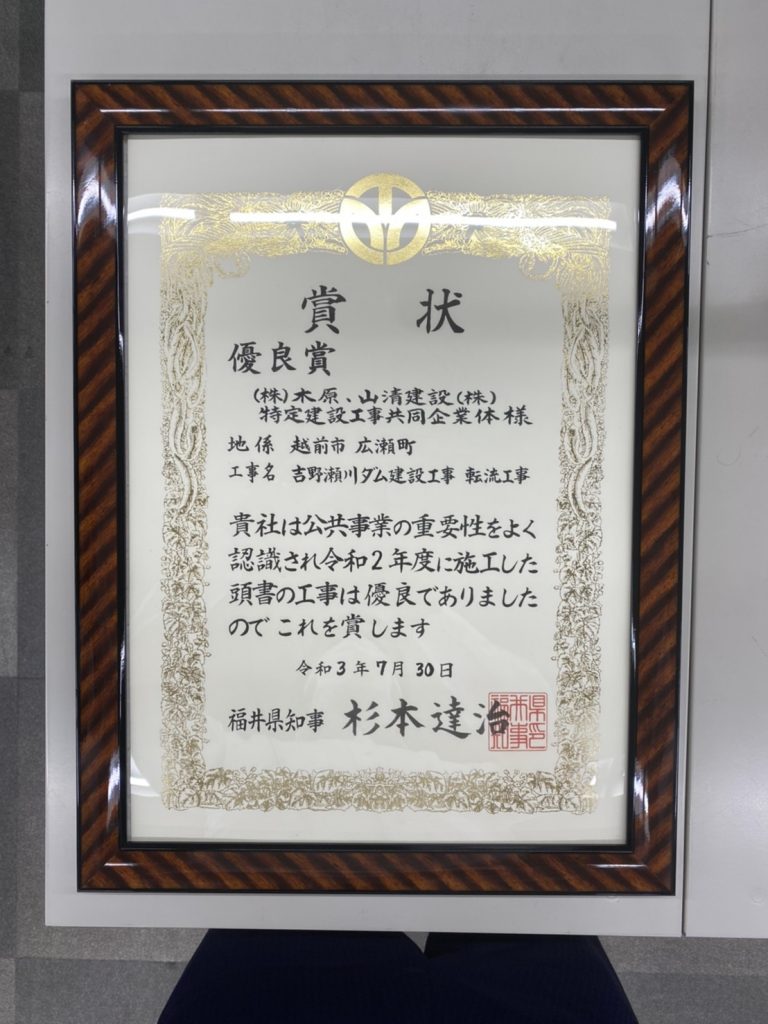 賞状
優良賞
(株)木原、山清建設(株)
特定建設工事共同企業体様
地係 越前市 広瀬町
工事名 吉野瀬川ダム建設工事 転流工事
貴社は公共事業の重要性をよく
認識され令和2年度に施工した
頭書の工事は優良でありました
のでこれを賞します
令和3年7月30日
福井県知事 杉本達治